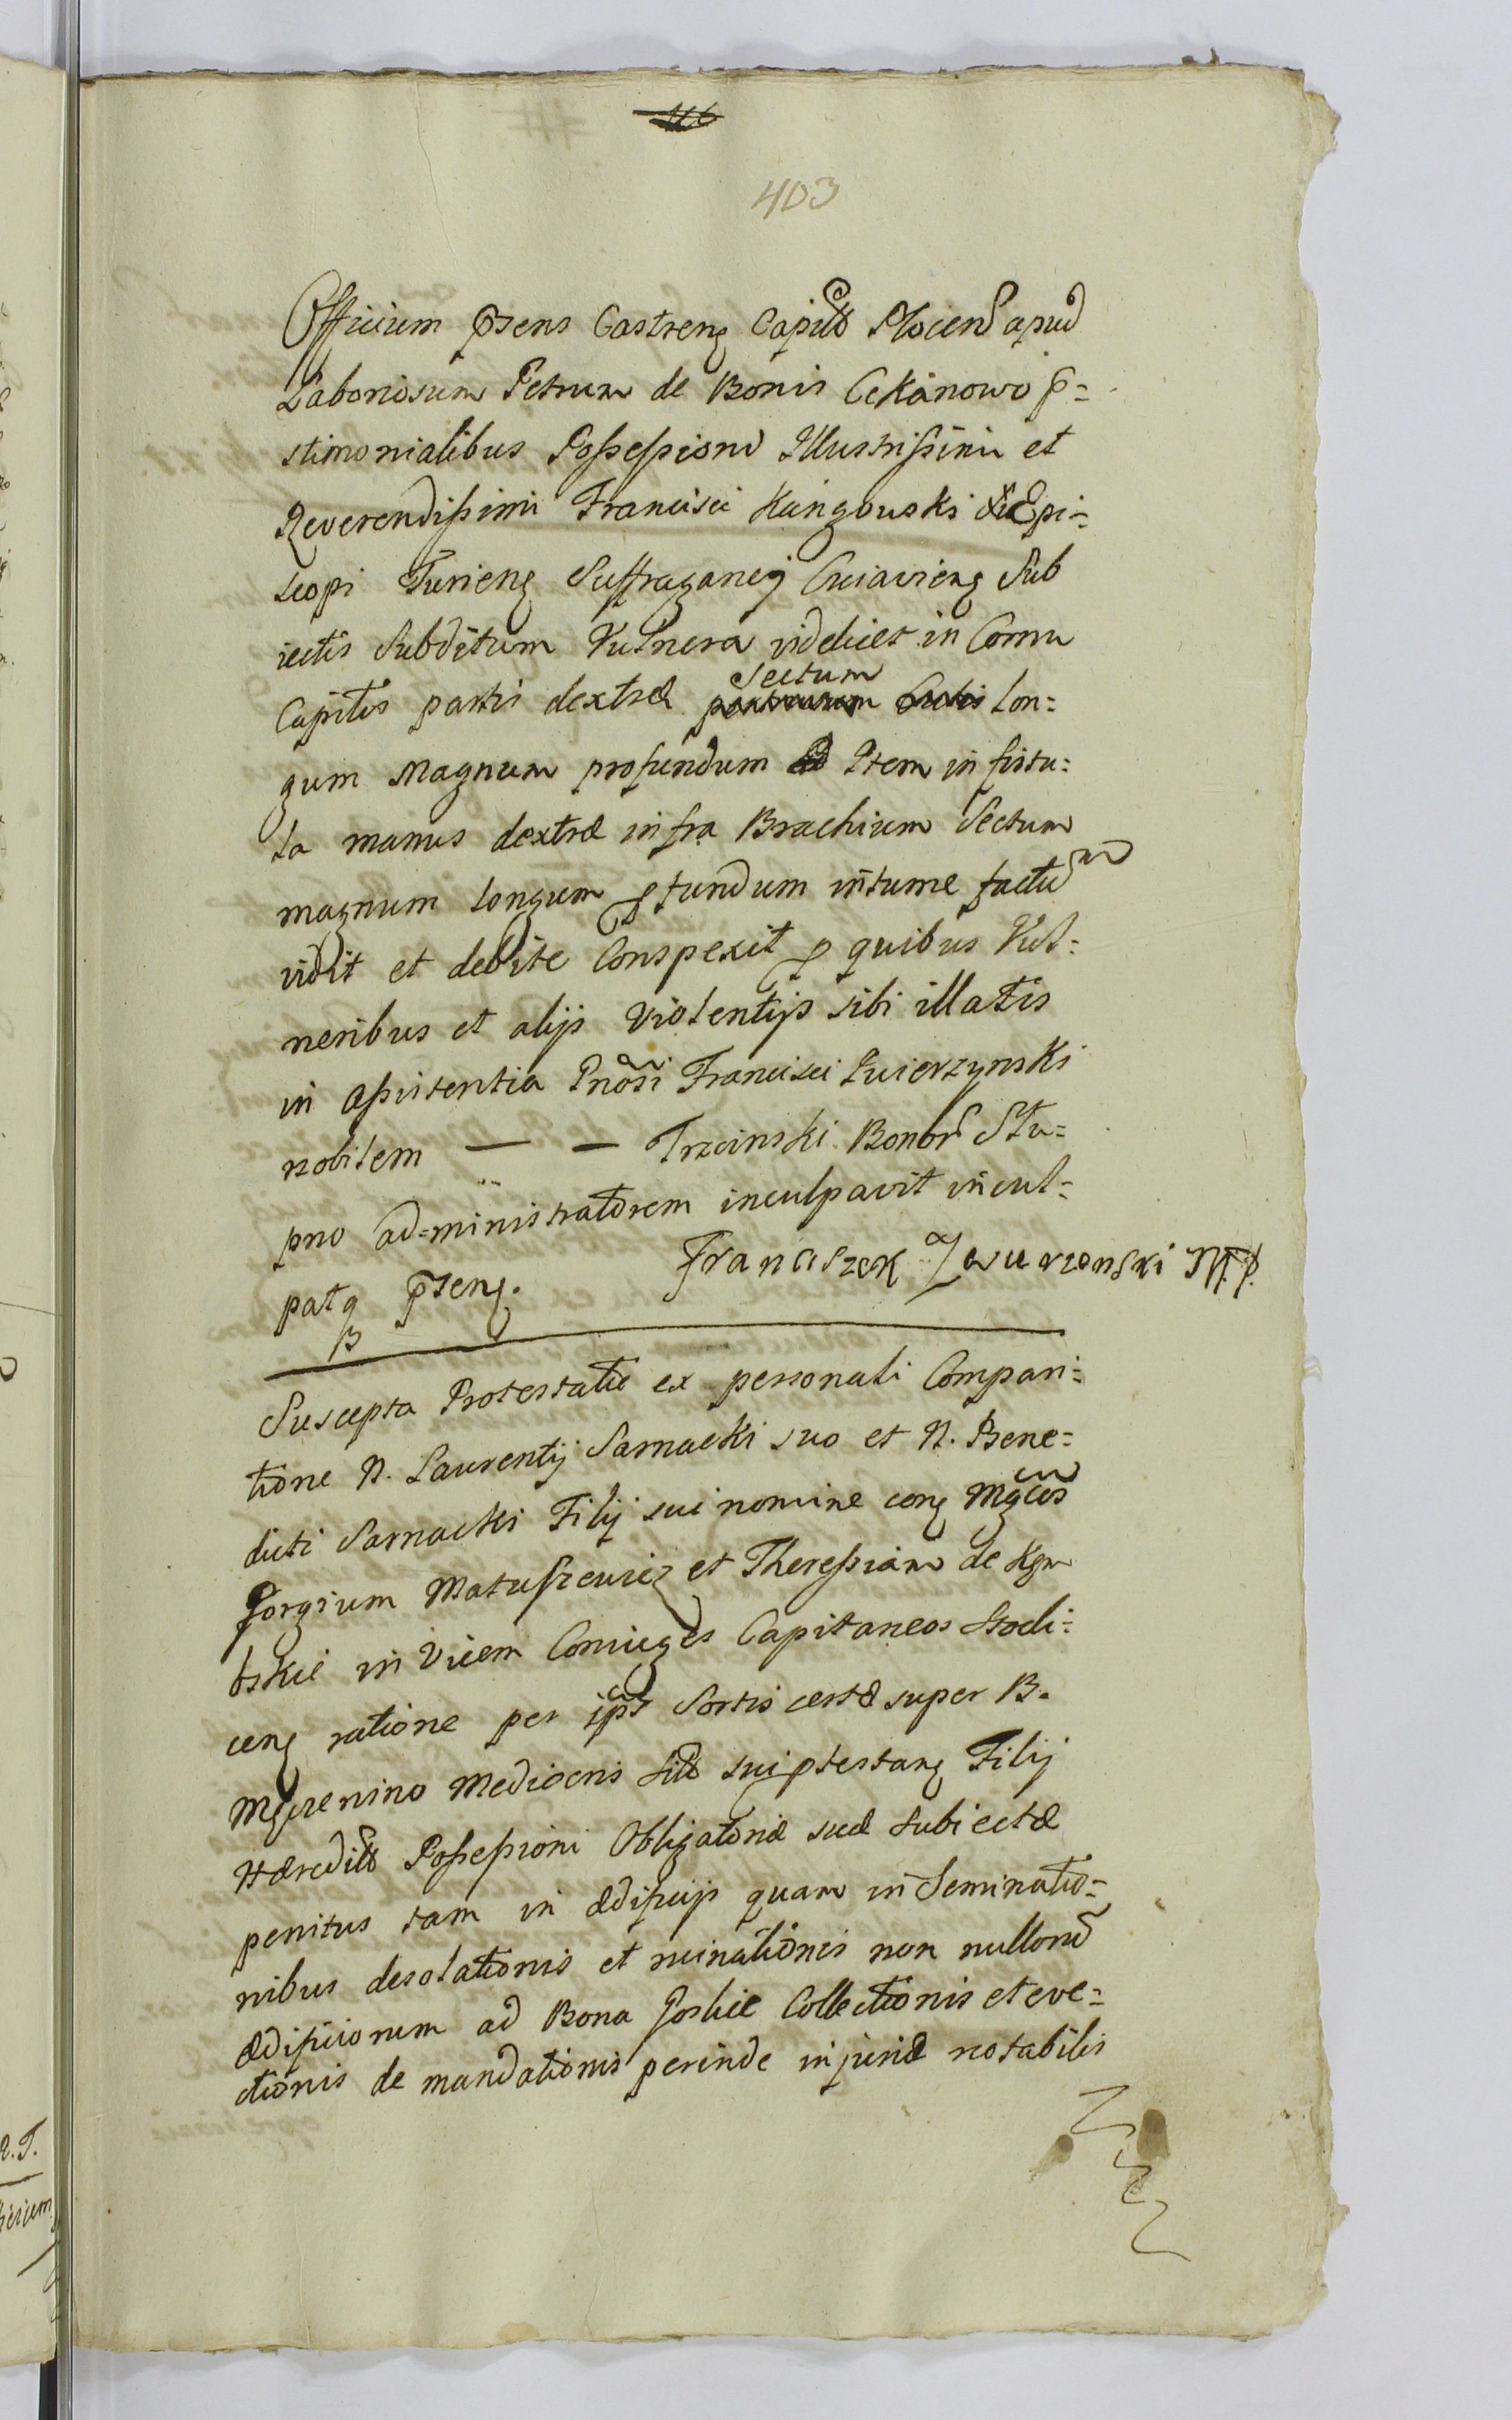 403
Officium pñs Castren̄ Capitle Plocen̄ apud
Laboriosum Petrum de Bonis Cekanowo p=
stimonialibus Possessioni Illustrissimi et
Reverendissimi Francisci Kangowski Epi=
scopi Suffraganej Cuiavien̄ Sub
iectis Subditum Vulnera videlicet in Cornu
Capitis partis dextræ Sectum Lon=
gum Magnum profundum Item in fistu=
la manus dextræ infra Brachium Sectum
magnum longum pfundum
vidit et debite Conspexit p quibus Vul=
neribus et alijs Violentijs sibi illatis
in Assistentia Gnosi Francisci Zwierzynski
nobilem — — Trzcinski Bonor Stu=
pno ad=ministratorem inculpavit incul=
patq pñsen̄. Franciszek M.p.
Suscepta Protestatio ex personali Compari=
tione N. Laurentij Sarnacki suo et N. Bene=
dicti Sarnacki Filij sui nomine con̄ Mgcos
Gorgium Matuszewicz et Theressiam de
in Vicem Coniuges Capitaneos Stocli=
cen̄ ratione per ipsos Sortis certæ super B.
Mgurenino Mediocris sui ptestan̄ Filij
Hæredit Possessioni Obligatoriæ suæ subiectæ
penitus tam in ædificijs quam in Seminatio=
nibus desolationis et ruinationis non nullorū
Ædificiorum ad Bona Goslice Collectionis et eve=
ctionis de mandationis perinde injuriæ notabilis